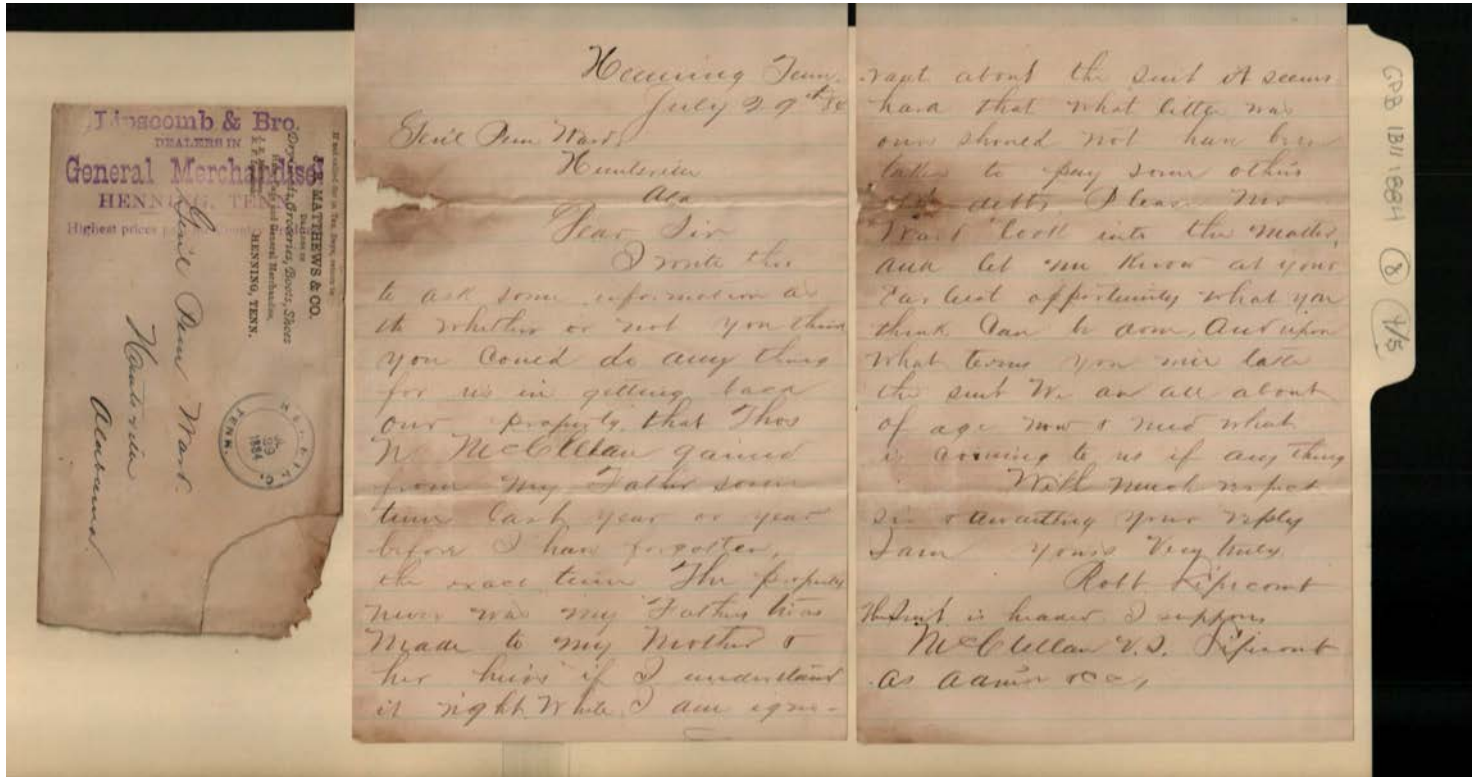 Lipscomb & Bro.
DEALERS IN
General Merchandise
HENNING, TENN.
Highest prices
MATTHEWS & CO.
Dealers in
Dry Goods, Groceries, Boots, Shoes
and General Merchandise,
HENNING, TENN.
Gen'l Penn Ward.
Huntsville
Alabama
HENNING
JUL
29
1884
TENN.
Henning Tenn.
July 29th 84
Gen'l Penn Ward,
Huntsville
Ala
Dear Sir
I write this
to ask some information as
to whether or not you think
you could do any thing
for us in getting back
our property that Thos
N McClellan gained
from my Father some
time last year or year
before I have forgotten,
the exact time The property
never was my Fathers twas
made to my Mother &
her heirs if I understand
it right While I am igno-
rant about the suit it seems
hard that what little was
ours should not have been
taken to pay some others
debts Please Mr
Ward look into the matter,
and let me know at your
Earliest opportunity what you
think can be done, and upon
what terms you will take
the suit We are all about
of age now & need what
is coming to us if any thing
With much respect
Sir & awaiting your reply
I am yours Very truly
Robt Lipscomb
The Suit is headed I suppose
McClellan V.S. Lipscomb
as admr &c,
GPB 1B11 1884 8 4/5